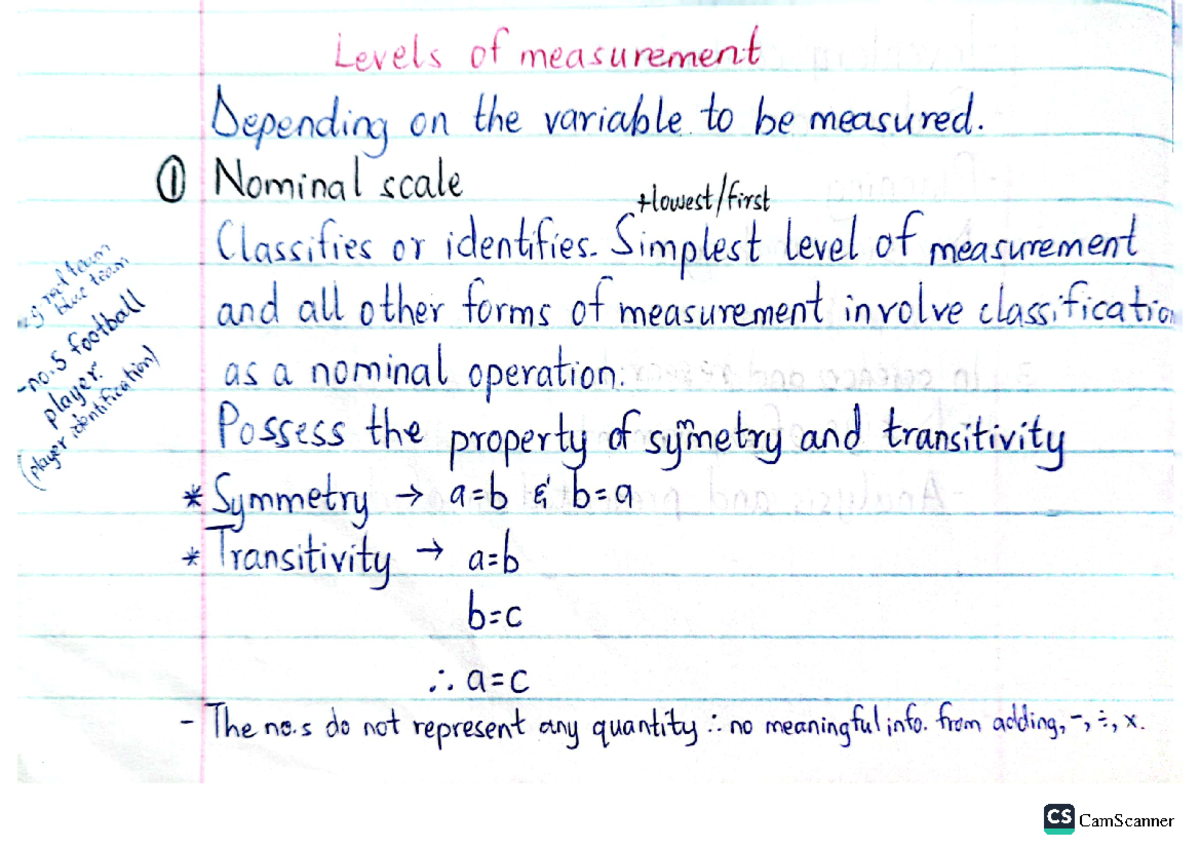 Levels of measurement
Depending on the variable to be measured.
① Nominal scale
+lowest/first
Classifies or identifies. Simplest level of measurement
and all other forms of measurement involve classification
as a nominal operation.
Possess the property of symmetry and transitivity
* Symmetry → a=b & b=a
* Transitivity → a=b
b=c
∴ a=c
- The no.s do not represent any quantity ∴ no meaningful info. from adding, -, ÷, x.
eg red team
blue team
-no.5 football
player.
(player identification)
CS CamScanner